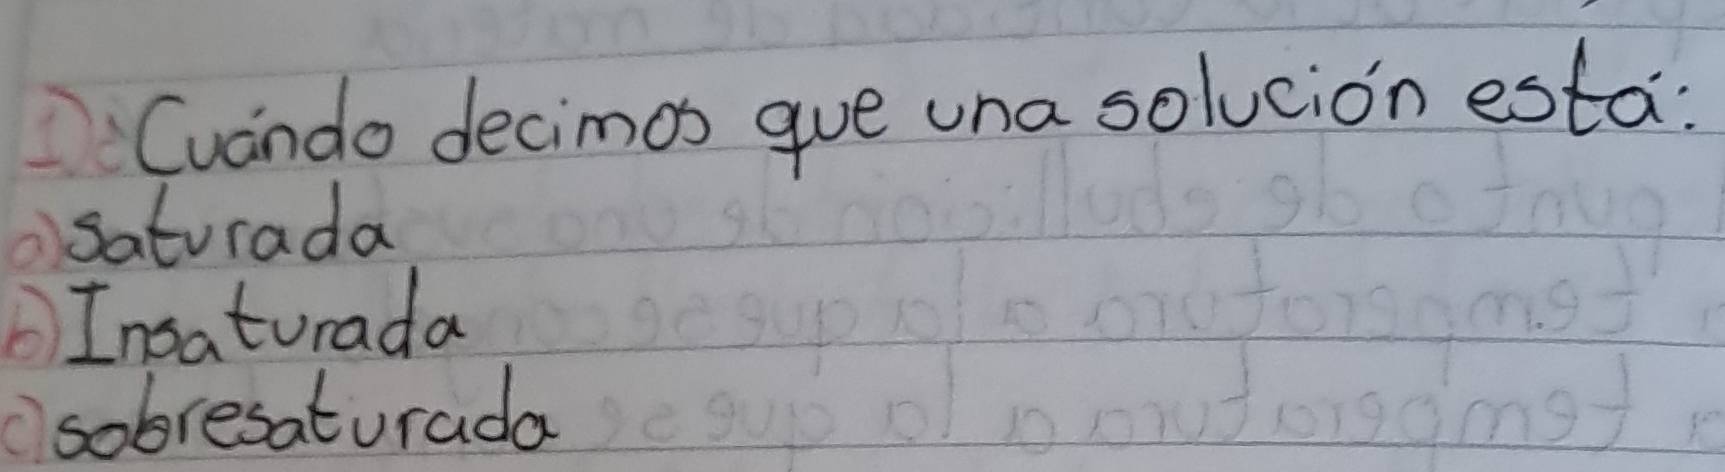 1) ¿Cuándo decimos que una solución está:
a) saturada
b) Insaturada
c) sobresaturada